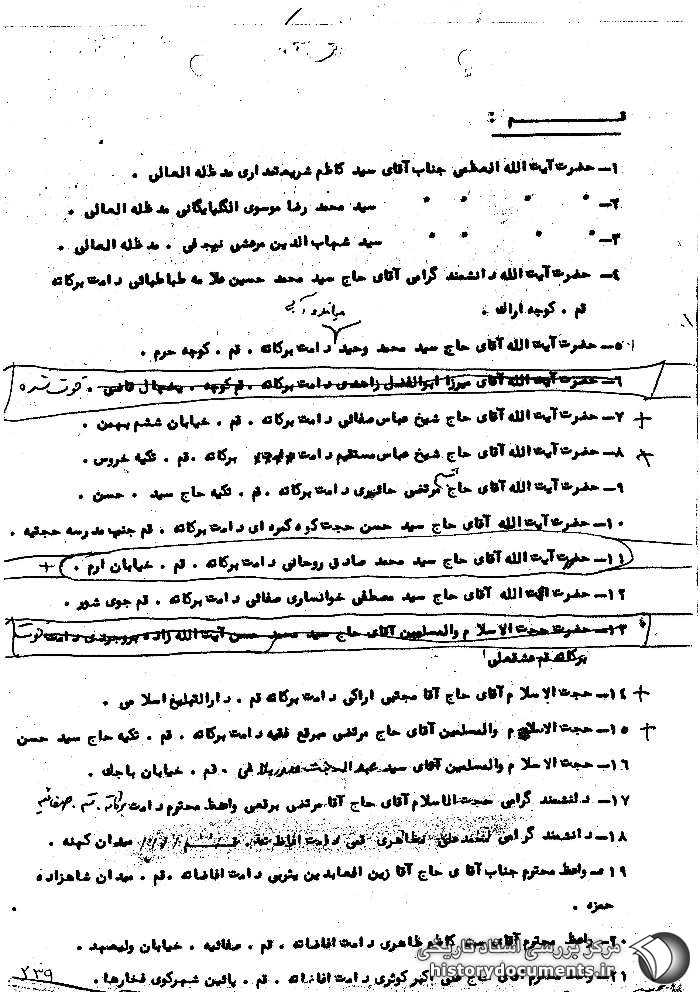 قم :
۱ـ حضرت آیت الله العظمی جناب آقای سید کاظم شریعتمداری مد ظله العالی .
۲ـ " " " " سید محمد رضا موسوی الگپایگانی مد ظله العالی .
۳ـ " " " " سید شهاب الدین مرعشی نجفی . مد ظله العالی .
۴ـ حضرت آیت الله دانشمند گرامی آقای حاج سید محمد حسین علامه طباطبائی دامت برکاته
قم . کوچه ارک .
۵ـ حضرت آیت الله آقای حاج سید محمد وحید دامت برکاته . قم . کوچه حرم .
۶ـ حضرت آیت الله آقای میرزا ابوالفضل زاهدی دامت برکاته . قم کوچه . یخچال قاضی . فوت شده
۷ـ حضرت آیت الله آقای حاج شیخ عباس صفائی دامت برکاته . قم . خیابان ششم بهمن . +
۸ـ حضرت آیت الله آقای حاج شیخ عباس مستقیم دامت برکاته . قم . تکیه خروس . +
۹ـ حضرت آیت الله آقای حاج شیخ مرتضی حائری دامت برکاته . قم . تکیه حاج سید . حسن .
۱۰ـ حضرت آیت الله آقای حاج سید حسن حجت کوه کمره ای دامت برکاته . قم جنب مدرسه حجتیه .
۱۱ـ حضرت آیت الله آقای حاج سید محمد صادق روحانی دامت برکاته . قم . خیابان ارم . +
۱۲ـ حضرت آیت الله آقای حاج سید مصطفی خوانساری صفائی دامت برکاته . قم جوی شور .
۱۳ـ حضرت حجت الاسلام والمسلمین آقای حاج سید محمد حسن آیت الله زاده بروجردی دامت فوت
برکاته قم عشقعلی
۱۴ـ حجت الاسلام آقای حاج آقا مجتبی اراکی دامت برکاته قم . دارالتبلیغ اسلامی . +
۱۵ـ حجت الاسلام والمسلمین آقای حاج مرتضی مبرقع فقیه دامت برکاته . قم . تکیه حاج سید حسن +
۱۶ـ حجت الاسلام والمسلمین آقای سید . قم . خیابان باجک .
۱۷ـ دانشمند گرامی حجت الاسلام آقای حاج آقا مرتضی برقعی واعظ محترم دامت برکاته . قم . صفائیه
۱۸ـ دانشمند گرامی قمی دامت افاضاته . قم میدان کهنه .
۱۹ـ واعظ محترم جناب آقای حاج آقا زین العابدین یثربی دامت افاضاته . قم . میدان شاهزاده
حمزه .
۲۰ـ واعظ محترم آقای سید کاظم طاهری دامت افاضاته . قم . صفائیه . خیابان ولیعهد .
۲۱ـ واعظ محترم آقای حاج علی اکبر کوثری دامت افاضاته . قم . پائین شهر کوی فخارها .
۲۳۹
مرکز بررسی اسناد تاریخی
historydocuments.ir